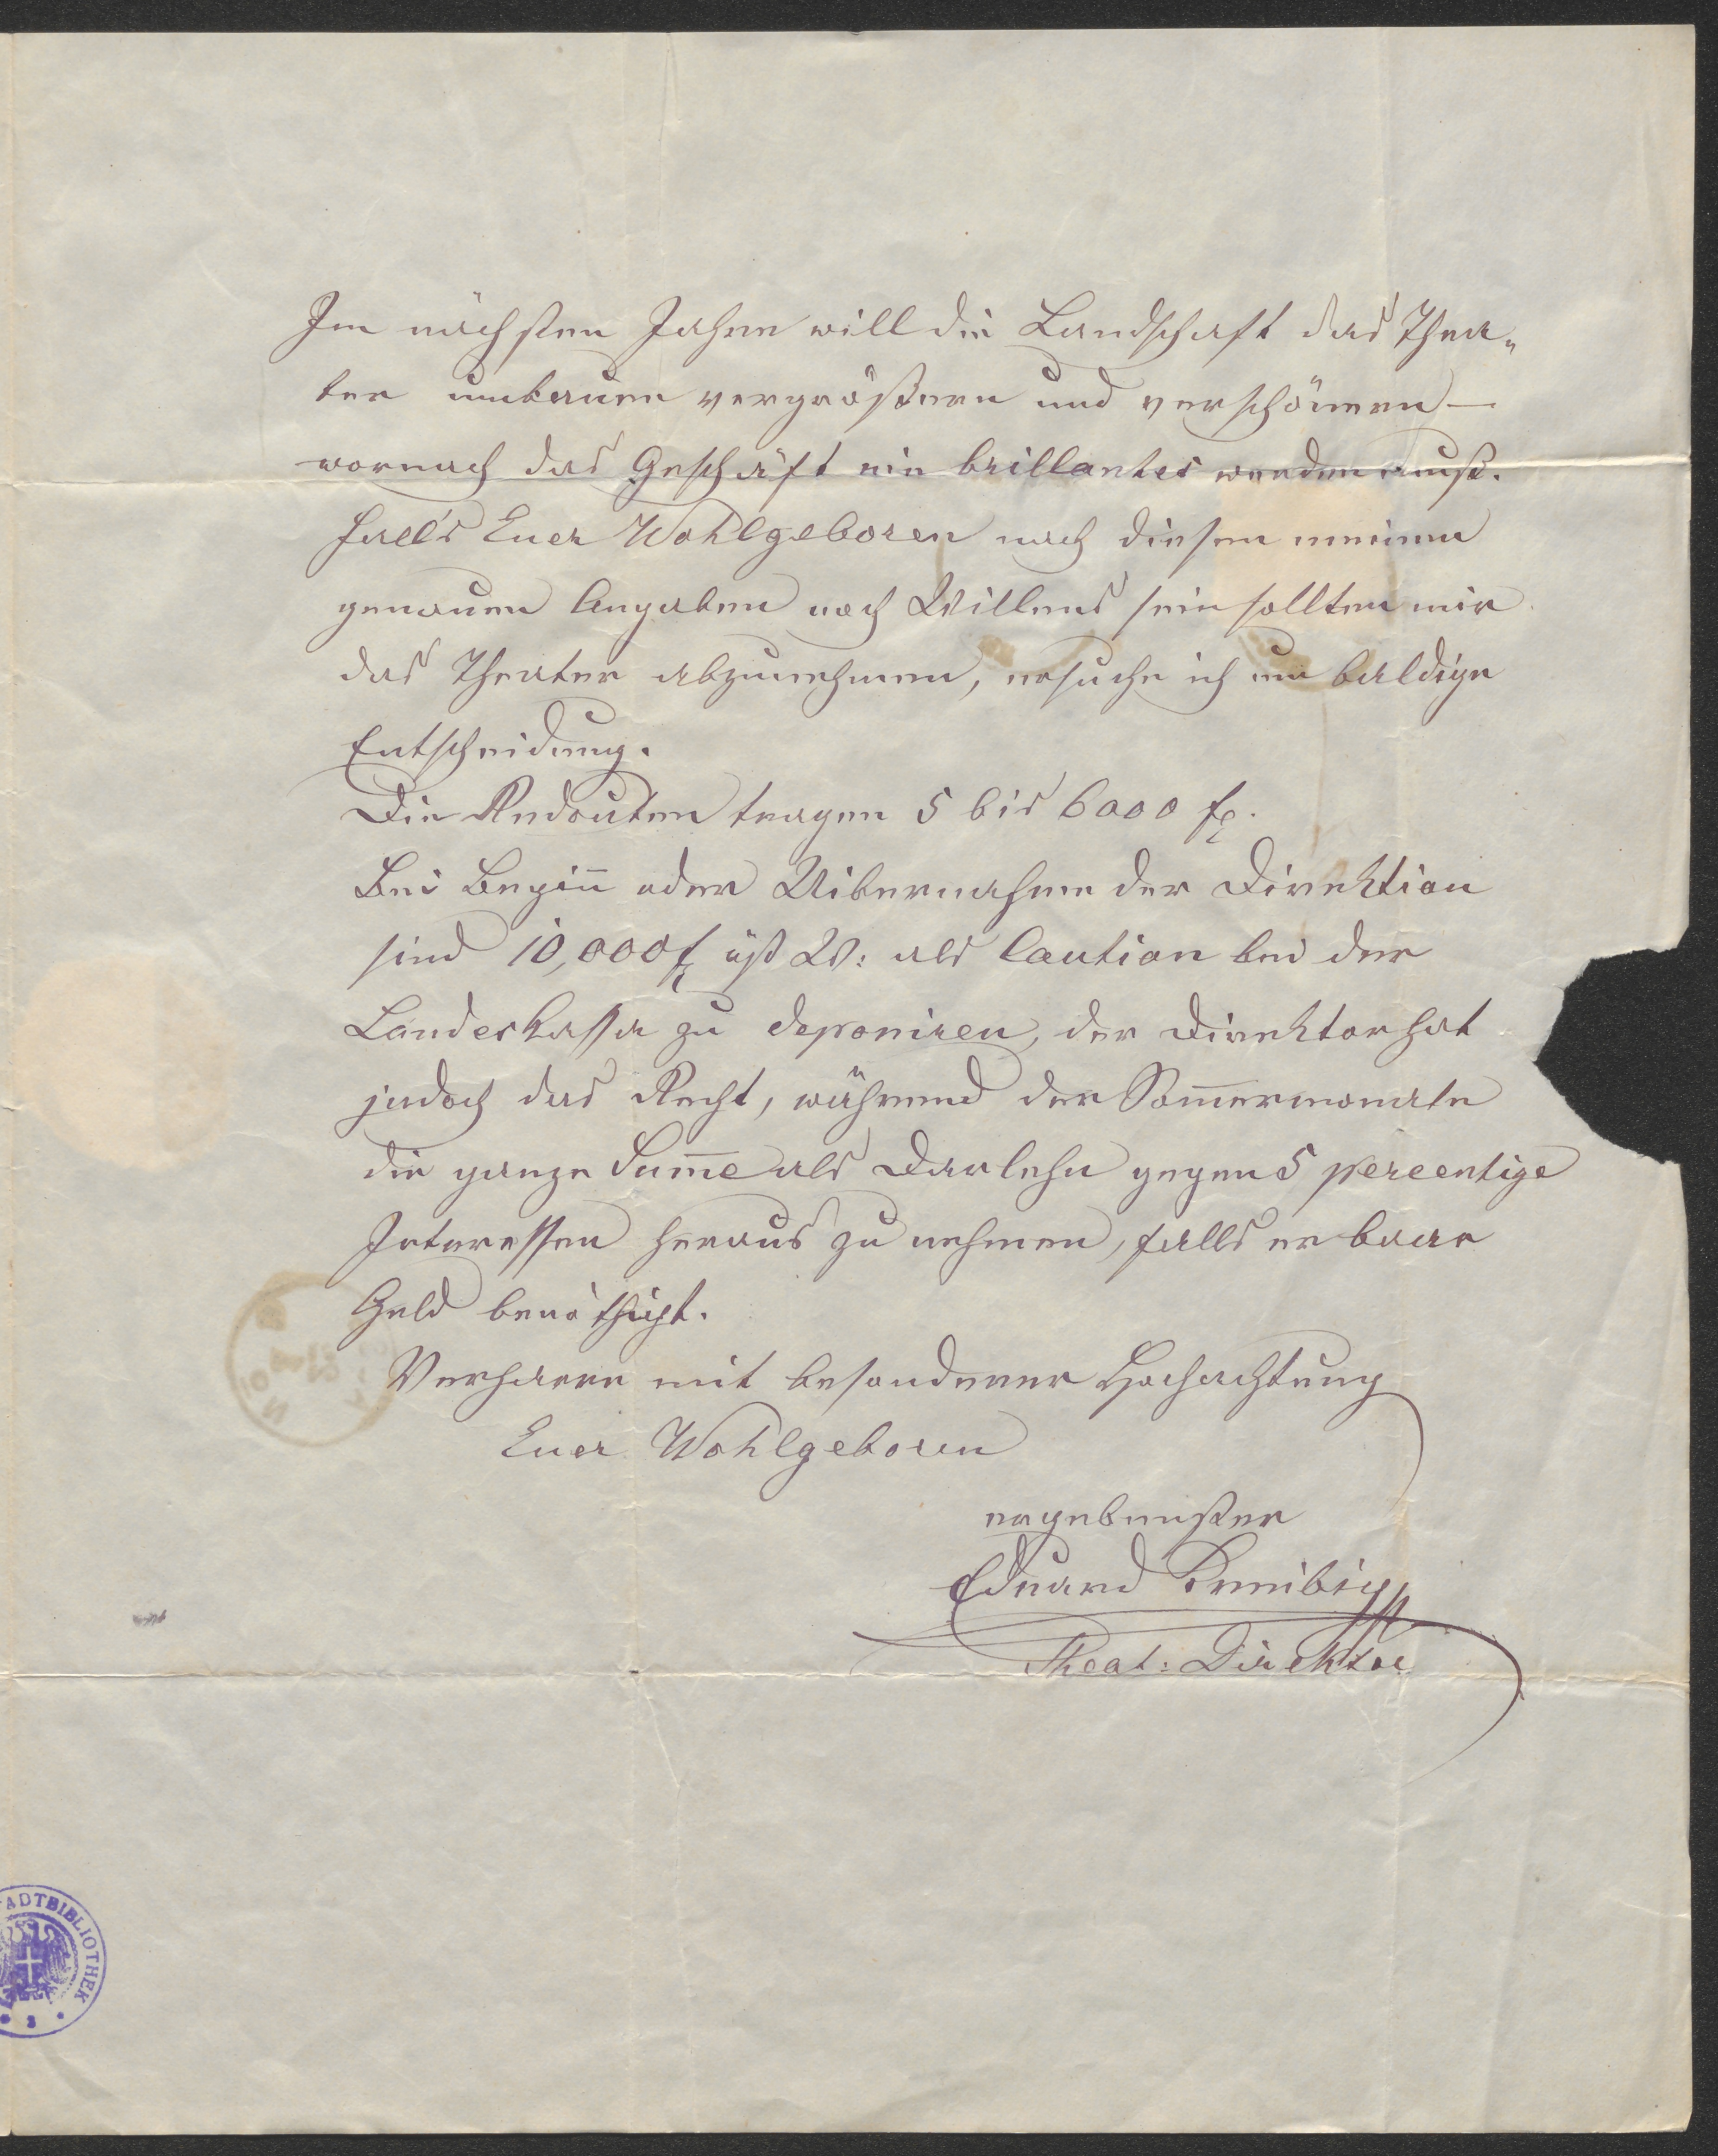 Im nächsten Jahre will die Landschaft das Thea„
ter umbauen vergrößern und verschönern –
wornach das Geschäft ein brillantes werden muß.
Fall's Euer Wohlgeboren nach diesen meinen
genauen Angaben noch Willens sein sollten mir
das Theater abzunehmen, ersuche ich um baldige
Entscheidung.
Die Redouten tragen 5 bis 6000 f.
Bei Begin̄ oder Uibernahme der Direktion
sind 10,000 f öst W: als Caution bei der
Landeskassa zu deponiren, der Direktor hat
jedoch das Recht, während der Som̄ermonate
die ganze Sum̄e als Darlehn gegen 5 percentige
Interessen heraus zu nehmen, falls er baar
Geld benöthigt.
Verharre mit besonderer Hochachtung
Euer Wohlgeboren
ergebenster
Eduard Kreibig
Theat: Direktor
STADTBIBLIOTHEK